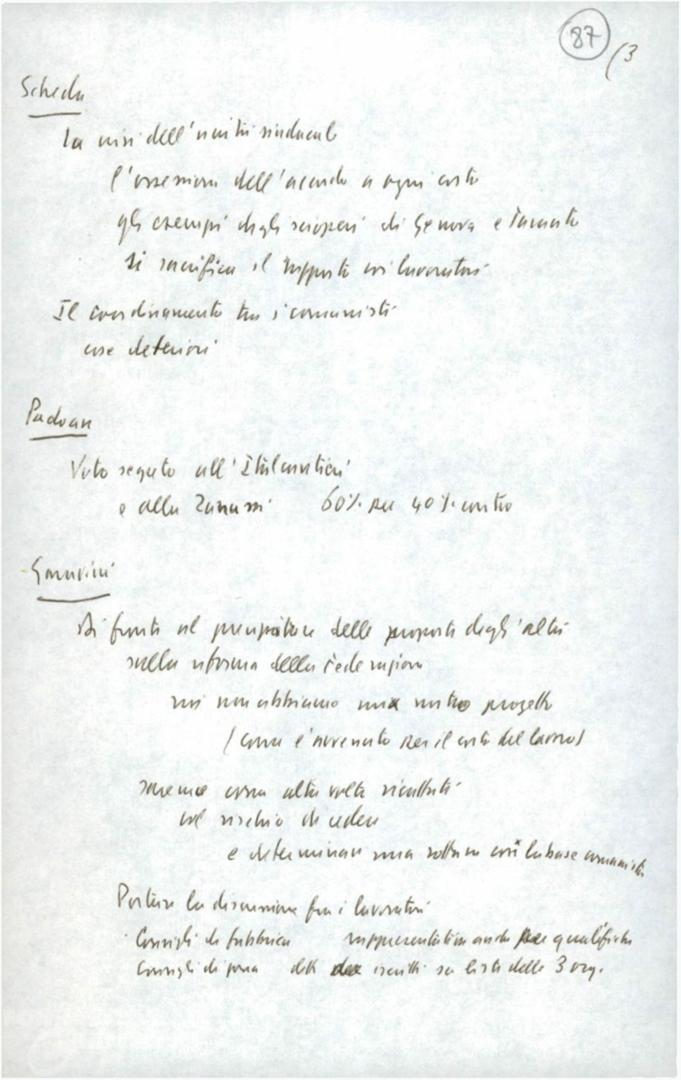 87 /3
Scheda
La crisi dell'unità sindacale
l'ossessione dell'accordo a ogni costo
gli esempi degli scioperi di Genova e Taranto
si sacrifica il rapporto coi lavoratori
Il coordinamento tra i comunisti
cose deteriori
Padoan
Voto segreto all'Italcantieri
e alla Zanussi 60% per 40% contro
Garavini
di fronte al precipitare delle proposte degli altri
sulla riforma della Federazione
noi non abbiamo un nostro progetto
(come è avvenuto per il costo del lavoro)
saremo come altre volte ricattati
col rischio di cedere
e determinare una rottura con la base comunista
Portare la discussione fra i lavoratori
Consigli di fabbrica rappresentativi anche per qualifiche
Consigli di zona iscritti su lista delle 3 org.